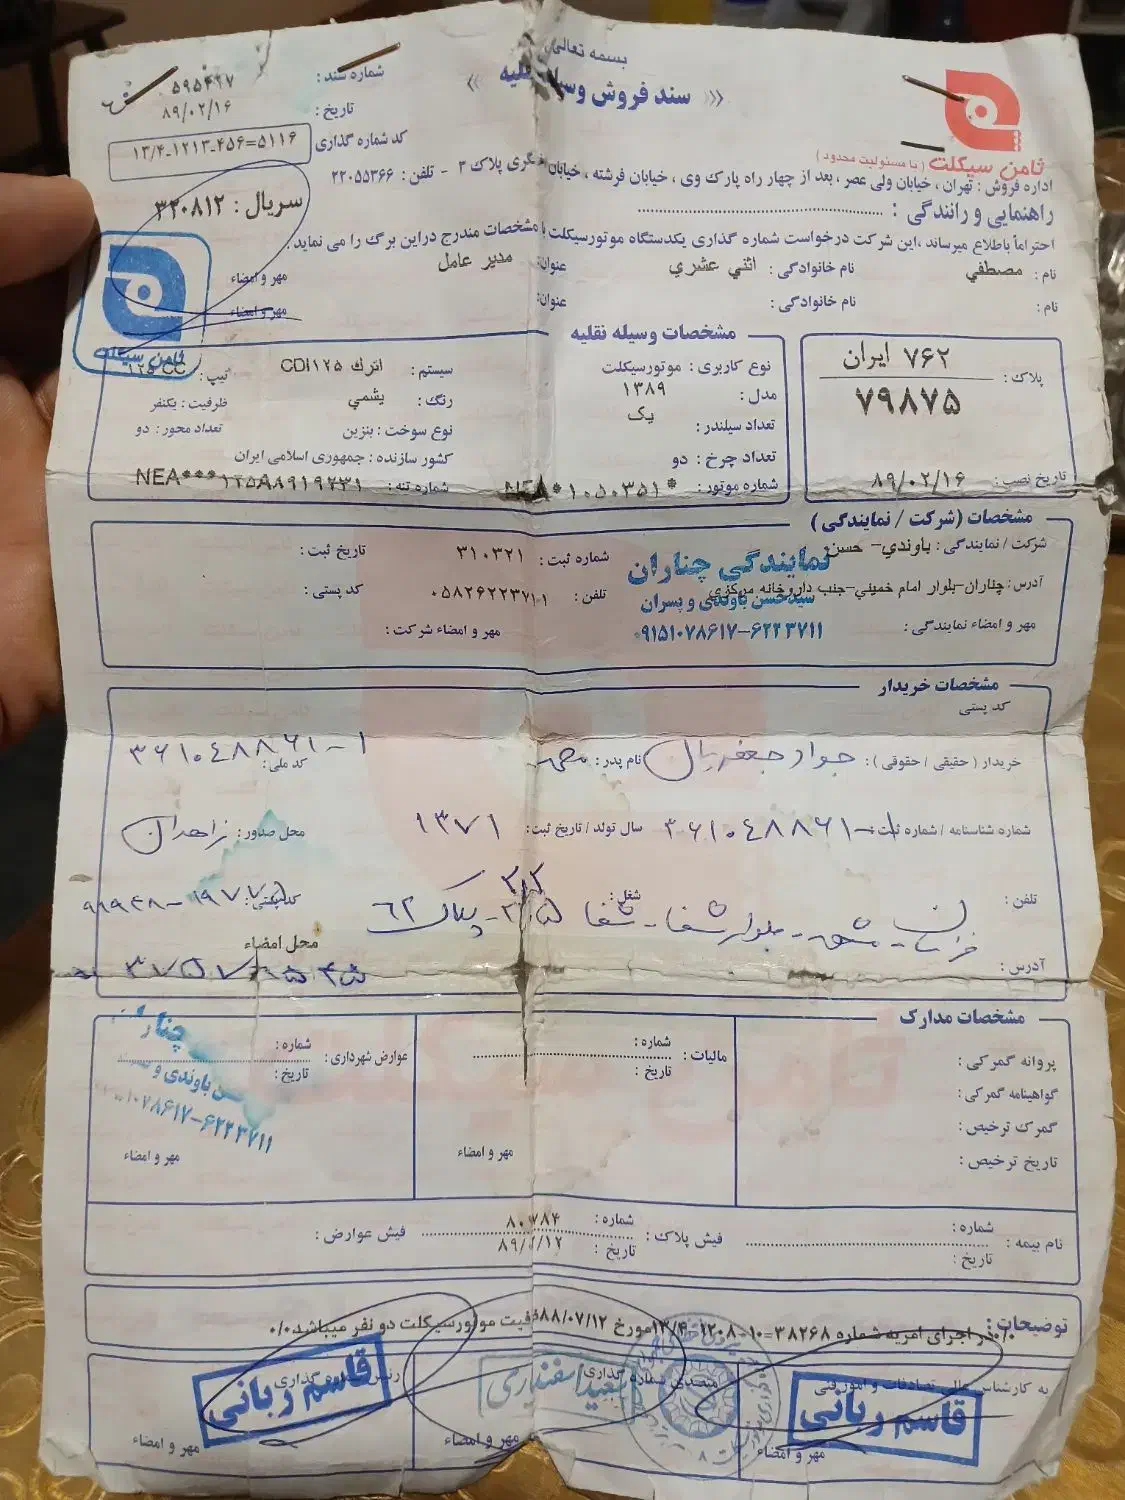 بسمه تعالی
سند فروش وسیله نقلیه
شماره سند : ۵۹۵۴۹۷
تاریخ : ۸۹/۰۲/۱۶
کد شماره گذاری ۱۳/۴-۱۲۱۳-۴۵۶=۵۱۱۶
ثامن سیکلت ( با مسئولیت محدود )
اداره فروش : تهران ، خیابان ولی عصر ، بعد از چهار راه پارک وی ، خیابان فرشته ، خیابان پلاک ۳ - تلفن : ۲۲۰۵۵۳۶۶
سریال : ۳۲۰۸۱۲
راهنمایی و رانندگی :
احتراماً باطلاع میرساند ،این شرکت درخواست شماره گذاری یکدستگاه موتورسیکلت با مشخصات مندرج دراین برگ را می نماید .
نام : مصطفي نام خانوادگی : اثني عشري عنوان: مدير عامل مهر و امضاء
نام : نام خانوادگی : عنوان: مهر و امضاء
ثامن سیکلت
مشخصات وسیله نقلیه
پلاک : ۷۶۲ ایران
۷۹۸۷۵
تاریخ نصب : ۸۹/۰۲/۱۶
نوع کاربری : موتورسیکلت سیستم : اترك CDI۱۲۵ تیپ : ۱۲۵ CC
مدل : ۱۳۸۹ رنگ : يشمي ظرفیت : یکنفر
تعداد سیلندر : یک نوع سوخت : بنزین تعداد محور : دو
تعداد چرخ : دو کشور سازنده : جمهوری اسلامی ایران
شماره موتور : NEA*۱۰۵۰۳۵۱* شماره تنه : NEA***۱۲۵A۸۹۱۹۲۳۱
مشخصات (شرکت / نمایندگی )
شرکت / نمایندگی : باوندي- حسن شماره ثبت : ۳۱۰۳۲۱ تاریخ ثبت :
نمایندگی چناران
آدرس : چناران-بلوار امام خميني-جنب داروخانه مركزي تلفن : ۰۵۸۲۶۲۲۳۷۱۱ کد پستی :
سیدحسن باوندی و پسران
مهر و امضاء نمایندگی : مهر و امضاء شرکت :
۰۹۱۵۱۰۷۸۶۱۷-۶۲۲۳۷۱۱
مشخصات خریدار
کد پستی
خریدار ( حقیقی / حقوقی ) : جواد جعفر نام پدر : کد ملی : ۳۶۱۰۴۸۸۶۱-۱
شماره شناسنامه / شماره ثبت : ۳۶۱۰۴۸۸۶۱-۱ سال تولد / تاریخ ثبت : ۱۳۷۱ محل صدور : زاهدان
تلفن : شغل : کد پستی :
آدرس : خراسان - مشهد - بلوار شفا - شفا - پلاک ۶۲
محل امضاء
مشخصات مدارک
پروانه گمرکی : مالیات : شماره : عوارض شهرداری : شماره :
گواهینامه گمرکی : تاریخ : تاریخ :
گمرک ترخیص :
تاریخ ترخیص : مهر و امضاء مهر و امضاء
باوندی و
۶۲۲۳۷۱۱
نام بیمه : شماره : فیش پلاک : شماره : فیش عوارض :
تاریخ : تاریخ :
توضیحات : ۰/۰در اجرای امریه شماره ۳۸۲۶۸=۱۰-۱۲۰۸-۱۳/۴مورخ ۸۸/۰۷/۱۲ظرفیت موتورسیکلت دو نفر میباشد۰/۰
به کارشناس عالی تصادفات و امور فنی متصدی شماره گذاری رئیس شماره گذاری
قاسم ربانی سعید اسفندیاری قاسم ربانی
مهر و امضاء مهر و امضاء مهر و امضاء